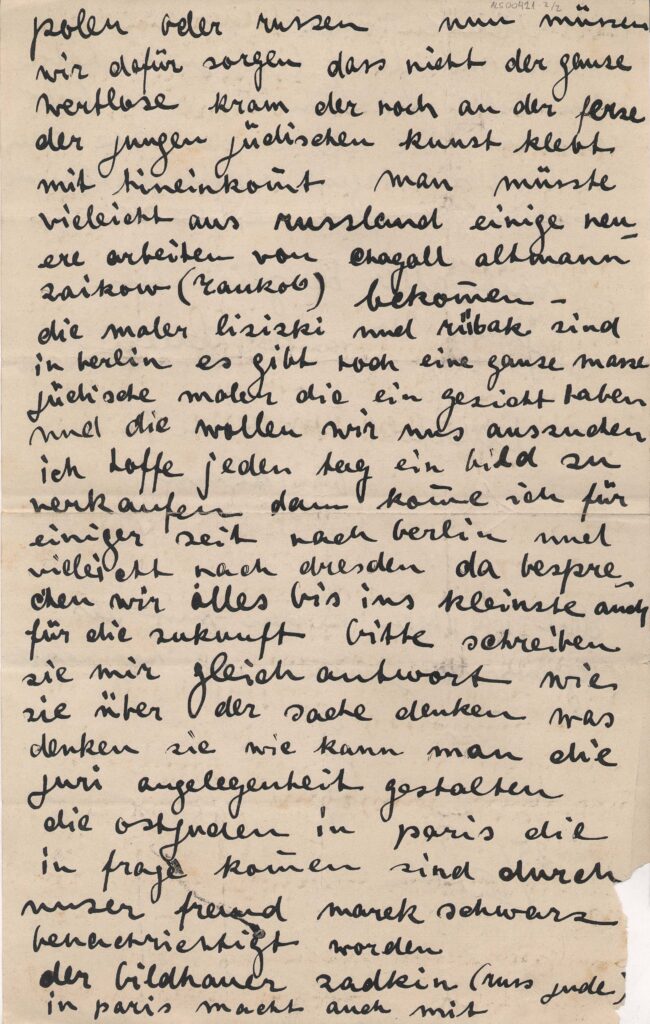 NS00421 2/2
polen oder russen nun müssen
wir dafür sorgen dass nicht der ganse
wertlose kram der noch an der ferse
der jungen jüdischen kunst klebt
mit hineinkom̅t man müsste
vieleicht aus russland einige neu-
ere arbeiten von chagall altmann
zaikow (Rankob) bekom̅en –
die maler lisizki und rübak sind
in berlin es gibt noch eine ganse masse
jüdische maler die ein gesicht haben
und die wollen wir uns aussuden
ich hoffe jeden tag ein bild zu
verkaufen dann kom̅e ich für
einiger seit nach berlin und
vieleicht nach dresden da bespre-
chen wir alles bis ins kleinste auch
für die zukunft bitte schreiben
sie mir gleich antwort wie
sie über der sache denken was
denken sie wie kann man die
juri angelegenheit gestalten
die ostjuden in paris die
in frage kom̅en sind durch
unser freund marek schwarz
benachrichtigt worden
der bildhauer zadkin (russ jude)
in paris macht auch mit